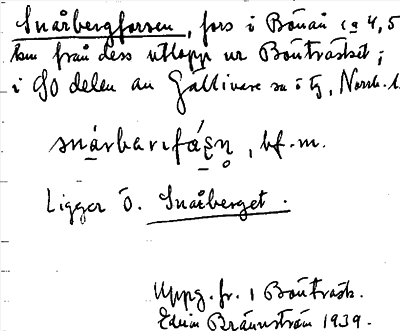 Snårbergforsen, fors i Bönån ca 4,5
km från dess utlopp ur Bönträsket;
i SO delen av Gällivare sn ö tg, Norrb. l.
snárbarifáʂn̥, bf. m.
Ligger ö. Snårberget.
Uppg. fr. i Bönträsk.
Edvin Brännström 1939.